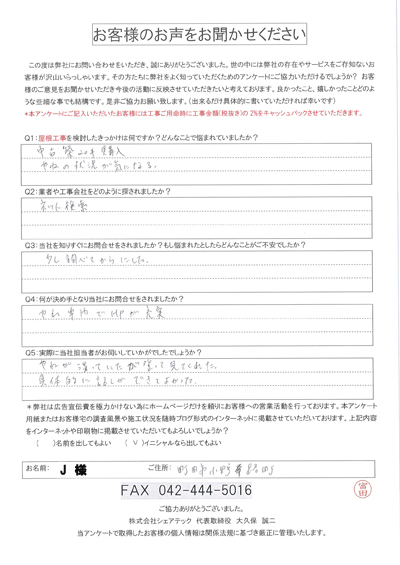 お客様のお声をお聞かせください
この度は弊社にお問い合わせをいただき、誠にありがとうございます。世の中には弊社の存在やサービスをご存知ないお
客様が沢山いらっしゃいます。その方たちに弊社をよく知っていただくためのアンケートにご協力いただけるでしょうか？ お客
様のご意見をお聞かせいただき今後の活動に反映させていただきたいと考えております。良かったこと、嬉しかったことどのよ
うな些細な事でも結構です。是非ご協力お願い致します。（出来るだけ具体的に書いていただければ幸いです）
*本アンケートにご記入いただいたお客様には工事ご用命時に工事金額(税抜き)の 2%をキャッシュバックさせていただきます。
Q1：屋根工事を検討したきっかけは何ですか？どんなことで悩まれていましたか？
中古 築20年 購入
やねの状況が気になる。
Q2：業者や工事会社をどのように探されましたか？
ネット検索
Q3：当社を知りすぐにお問合せをされましたか？もし悩まれたとしたらどんなことがご不安でしたか？
少し調べてからにした。
Q4：何が決め手となり当社にお問合せをされましたか？
やね専門でHPが充実
Q5：実際に当社担当者がお伺いしていかがでしたでしょうか？
やねが
登って見てくれた。
具体的に話しができてよかった。
＊弊社は広告宣伝費を極力かけない為にホームページだけを頼りにお客様への営業活動を行っております。本アンケート
用紙またはお客様宅の調査風景や施工状況を随時ブログ形式のインターネットに掲載させていただいております。上記内容
をインターネットや印刷物に掲載させていただいてもよろしいでしょうか？
（　）名前を出してもよい （ V ）イニシャルなら出してもよい
お名前： J 様 ご住所： 町田市小野路町
FAX 042-444-5016
富田
ご協力ありがとうございました。
株式会社シェアテック 代表取締役 大久保 誠二
当アンケートで取得したお客様の個人情報は関係法規に基づき厳正に管理いたします。